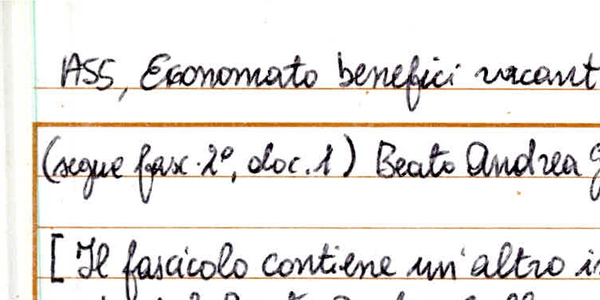 ASS, Economato benefici vacant
(segue fasc. 2°, doc. 1) Beato Andrea G
[Il fascicolo contiene un'altro in